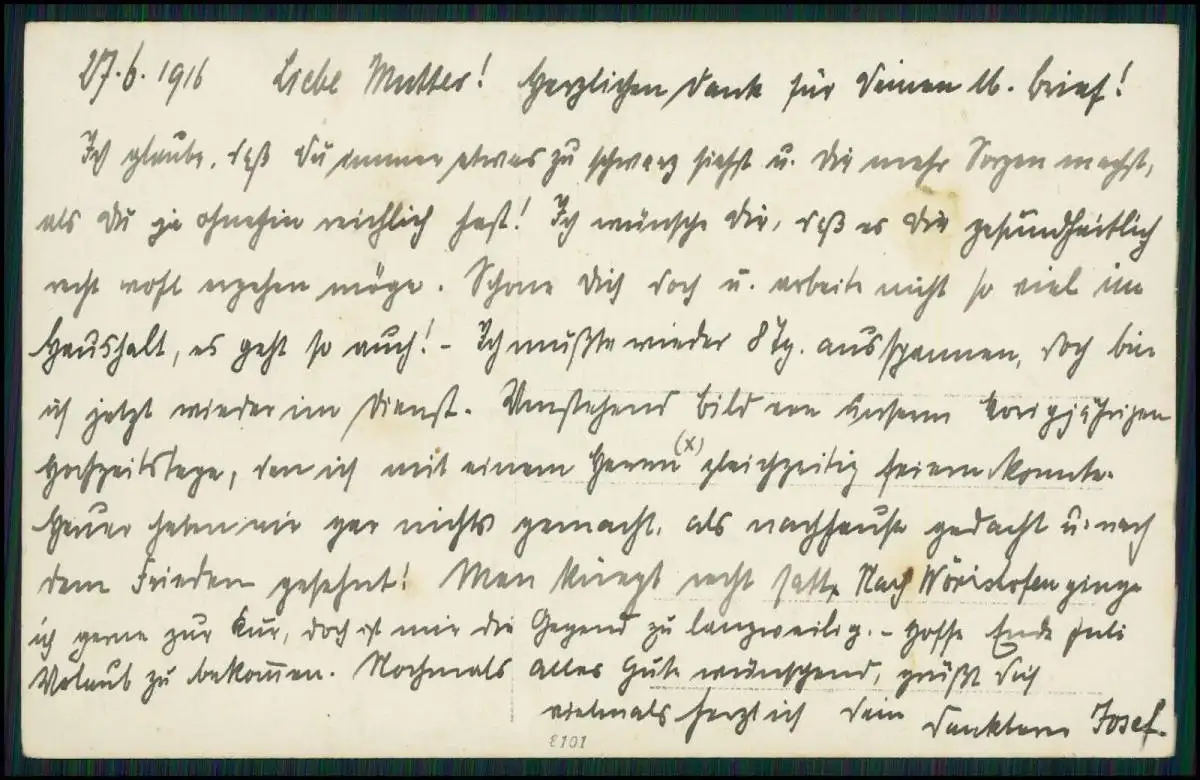 27.6.1916 Liebe Mutter! Herzlichen Dank für Deinen lb. Brief!
Ich glaube, daß Du immer etwas zu schwarz siehst u. Dir mehr Sorgen machst,
als Du ja ohnehin reichlich hast! Ich wünsche Dir, daß es Dir gesundheitlich
recht wohl ergehen möge. Schone Dich doch u. arbeite nicht so viel im
Haushalt, es geht so auch! - Ich mußte wieder 8 Tg. ausspannen, doch bin
ich jetzt wieder im Dienst. Umstehend Bild von unserm vorigjährigen
Hochzeitstage, den ich mit einem Herrn (x) gleichzeitig feiern konnte.
Heuer haben wir gar nichts gemacht, als nachhause gedacht u. nach
dem Frieden gesehnt! Man kriegt recht satt. Nach Wörishofen ginge
ich gerne zur Kur, doch ist mir die Gegend zu langweilig. - Hoffe Ende Juli
Urlaub zu bekommen. Nochmals alles Gute wünschend, grüßt Dich
vielmals herzlich Dein dankbarer Josef.
8101